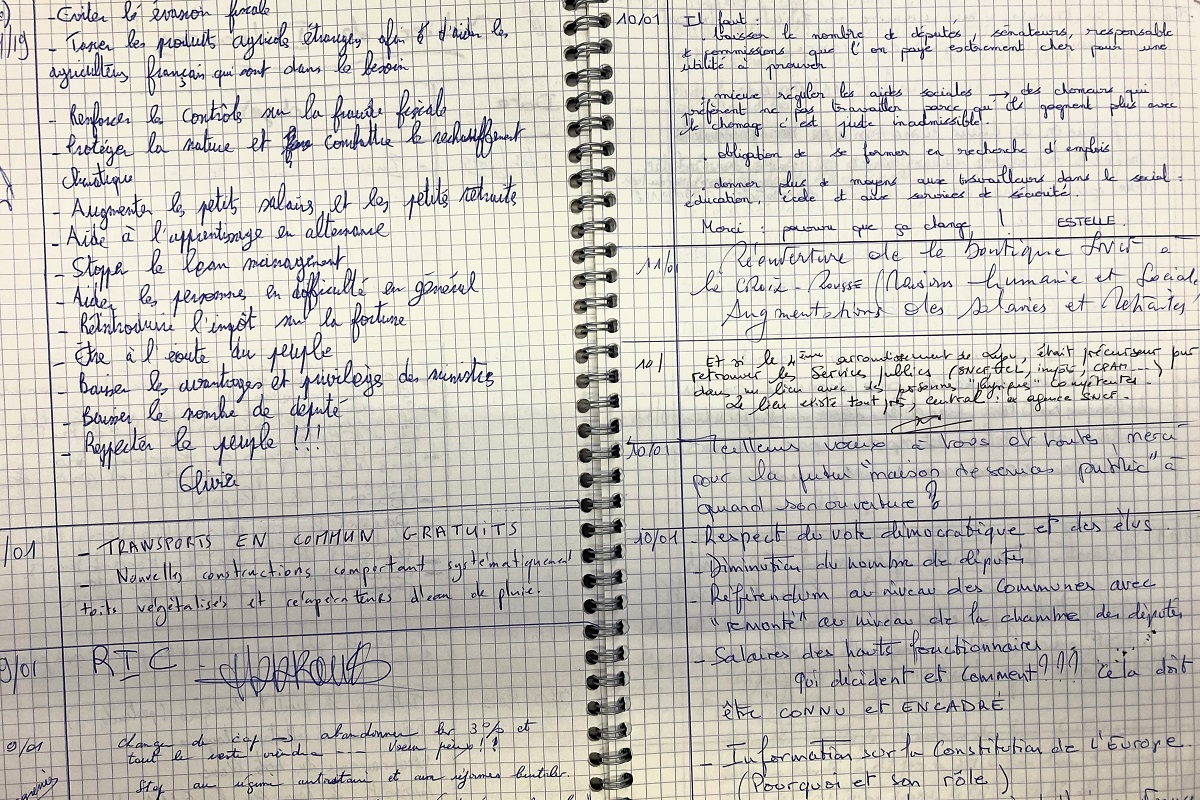 - Eviter lé évasion fiscale
1/19
- Taxer les produits agricols étrangers afin d'aider les
agriculteurs français qui sont dans le besoin
- Renforcer la contrôls sur la fraude fiscale
- Protéger la nature et combattre le rechauffement
climatique
- Augmenter les petits salairs et les petits retraits
- Aide à l'apprentissage en alternance
- Stopper le lean management
- Aider les personnes en difficulté en général
- Réintroduire l'impôt sur la fortune
- Être à l'écoute du peuple
- Baisser les avantages et privilèges des ministres
- Baisser le nombre de député
- Respecter le peuple !!!
/01
- TRANSPORTS EN COMMUN GRATUITS
- Nouvelles constructions comportant systématiquement
toits végétalisés et récupérateurs d'eau de pluie.
9/01
RIC
9/01
changer de cap → abandonner les 3% et
tout le reste viendra ---- Voeu pieux !!
Stop au régime autoritaire et aux réformes
10/01
Il faut :
. baisser le nombre de députés, sénateurs, responsable
de commissions que l'on paye extrement cher pour une
utilité à prouver
. mieux réguler les aides sociales → des chomeurs qui
préfèrent ne pas travailler parce qu'ils gagnent plus avec
le chomage c'est juste inadmissible.
. obligation de se former en recherche d'emplois
. donner plus de moyens aux travailleurs dans le social :
éducation, école et aux services de sécurité.
Merci : pourvu que ça change ! ESTELLE.
11/01
Réouverture de la boutique SNCF à
la CROIX-ROUSSE (Raisons humanie et Sociale
Augmentations des Salaries et Retraités
10/
Et si le 4ème arrondissement de Lyon, était précurseur pour
retrouver les Services publics (SNCF, HCL, impôt, CPAM ---)
dans un lieu avec des personnes "physiques" compétentes.
Le lieu existe toujours, central : ex agence SNCF.
10/01
Meilleurs voeux à tous et toutes, merci
pour la futur "maison de services public" à
quand son ouverture ?
10/01
- Respect du vote démocratique et des élus.
- Diminution du nombre de députés
- Référendum au niveau des Communes avec
"remonté" au niveau de la chambre des députés
- Salaires des hauts fonctionnaires
qui décident et comment ??? cela doit
être CONNU et ENCADRÉ
- Information sur la Constitution de l'Europe.
(Pourquoi et son rôle)